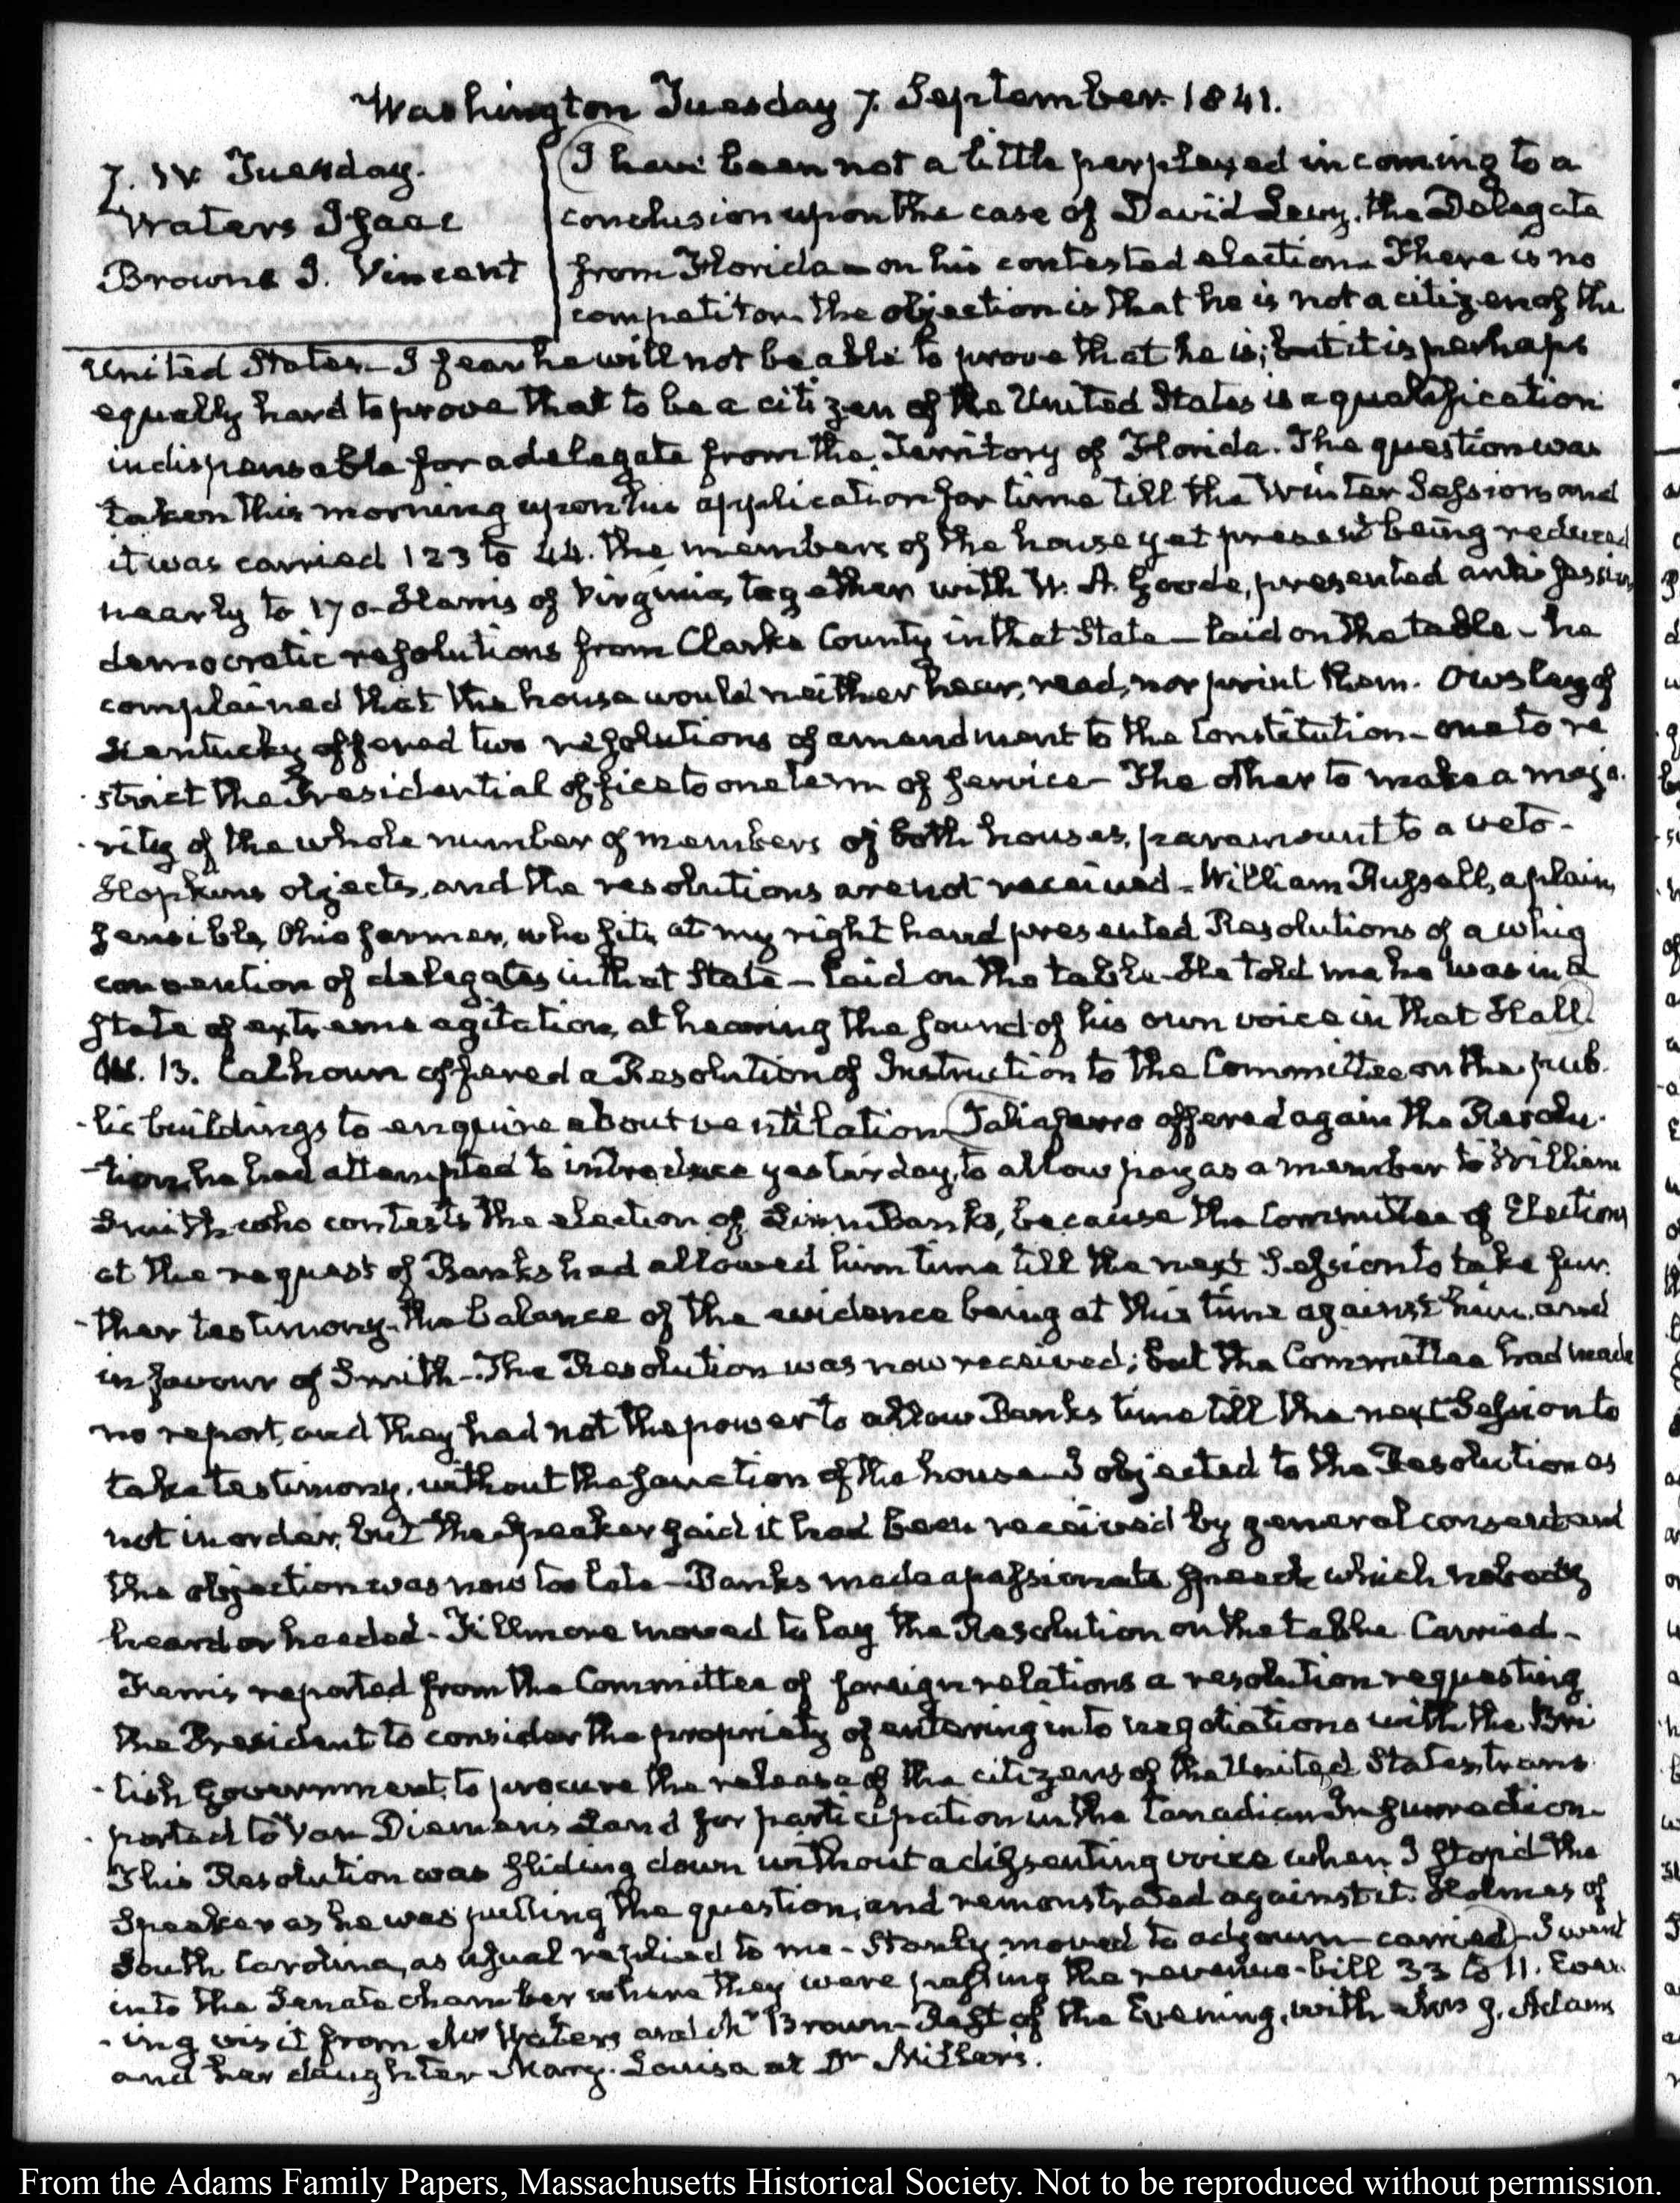 Washington Tuesday 7. September. 1841.
7. IV. Tuesday.
Waters Isaac
Browne J. Vincent
I have been not a little perplexed in coming to a
conclusion upon the case of David Levy, the Delegate
from Florida — on his contested election. There is no
competitor. The objection is that he is not a citizen of the
United States — I fear he will not be able to prove that he is; but it is perhaps
equally hard to prove that to be a citizen of the United States is a qualification
indispensable for a delegate from the Territory of Florida. The question was
taken this morning upon his application for time till the Winter Session and
it was carried 123 to 44. The members of the house yet present being reduced
nearly to 170 - Harris of Virginia, together with W. A. Goode, presented
democratic resolutions from Clarke County in that State — laid on the table — he
complained that the house would neither hear, read, nor print them. Owsley of
Kentucky offered two resolutions of amendment to the Constitution — one to re
strict the Presidential office to one term of service — The other to make a majo-
-rity of the whole number of members of both houses, paramount to a veto -
Hopkins objects, and the resolutions are not received — William Russell, a plain,
sensible, Ohio farmer, who sits at my right hand presented Resolutions of a whig
convention of delegates in that State — laid on the table. He told me he was in a
state of extreme agitation, at hearing the sound of his own voice in that Hall.
W. B. Calhoun offered a Resolution of Instruction to the Committee on the pub-
-lic buildings to enquire about ventilation. Taliaferro offered again the Resolu-
-tion, he had attempted to introduce yesterday, to allow pay as a member to William
Smith who contests the election of Linn Banks, because the Committee of Elections
at the request of Banks had allowed him time till the next Session to take fur-
-ther testimony. The balance of the evidence being at this time against him, and
in favour of Smith — The Resolution was now received; but the Committee had made
no report, and they had not the power to allow Banks time till the next Session to
take testimony, without the sanction of the house — I objected to the Resolution as
not in order, but the Speaker said it had been received by general consent and
the objection was now too late — Banks made a passionate speech which nobody
heard or heeded — Fillmore moved to lay the Resolution on the table. Carried —
Ferris reported from the Committee of foreign relations a resolution requesting
the President to consider the propriety of entering into negotiations with the Bri
-tish Government, to procure the release of the citizens of the United States, trans
-ported to Van Diemen's Land for participation in the Canadian Insurrection.
This Resolution was sliding down without a dissenting voice when I stop'd the
Speaker as he was putting the question, and remonstrated against it. Holmes of
South Carolina, as usual replied to me — Stanly moved to adjourn — carried — I went
into the Senate chamber where they were passing the revenue-bill 33 to 11. Even
-ing visit from Mr Waters and Mr Brown — Rest of the Evening, with Mrs J. Adams
and her daughter Mary. Louisa at Dr Miller's.
From the Adams Family Papers, Massachusetts Historical Society. Not to be reproduced without permission.